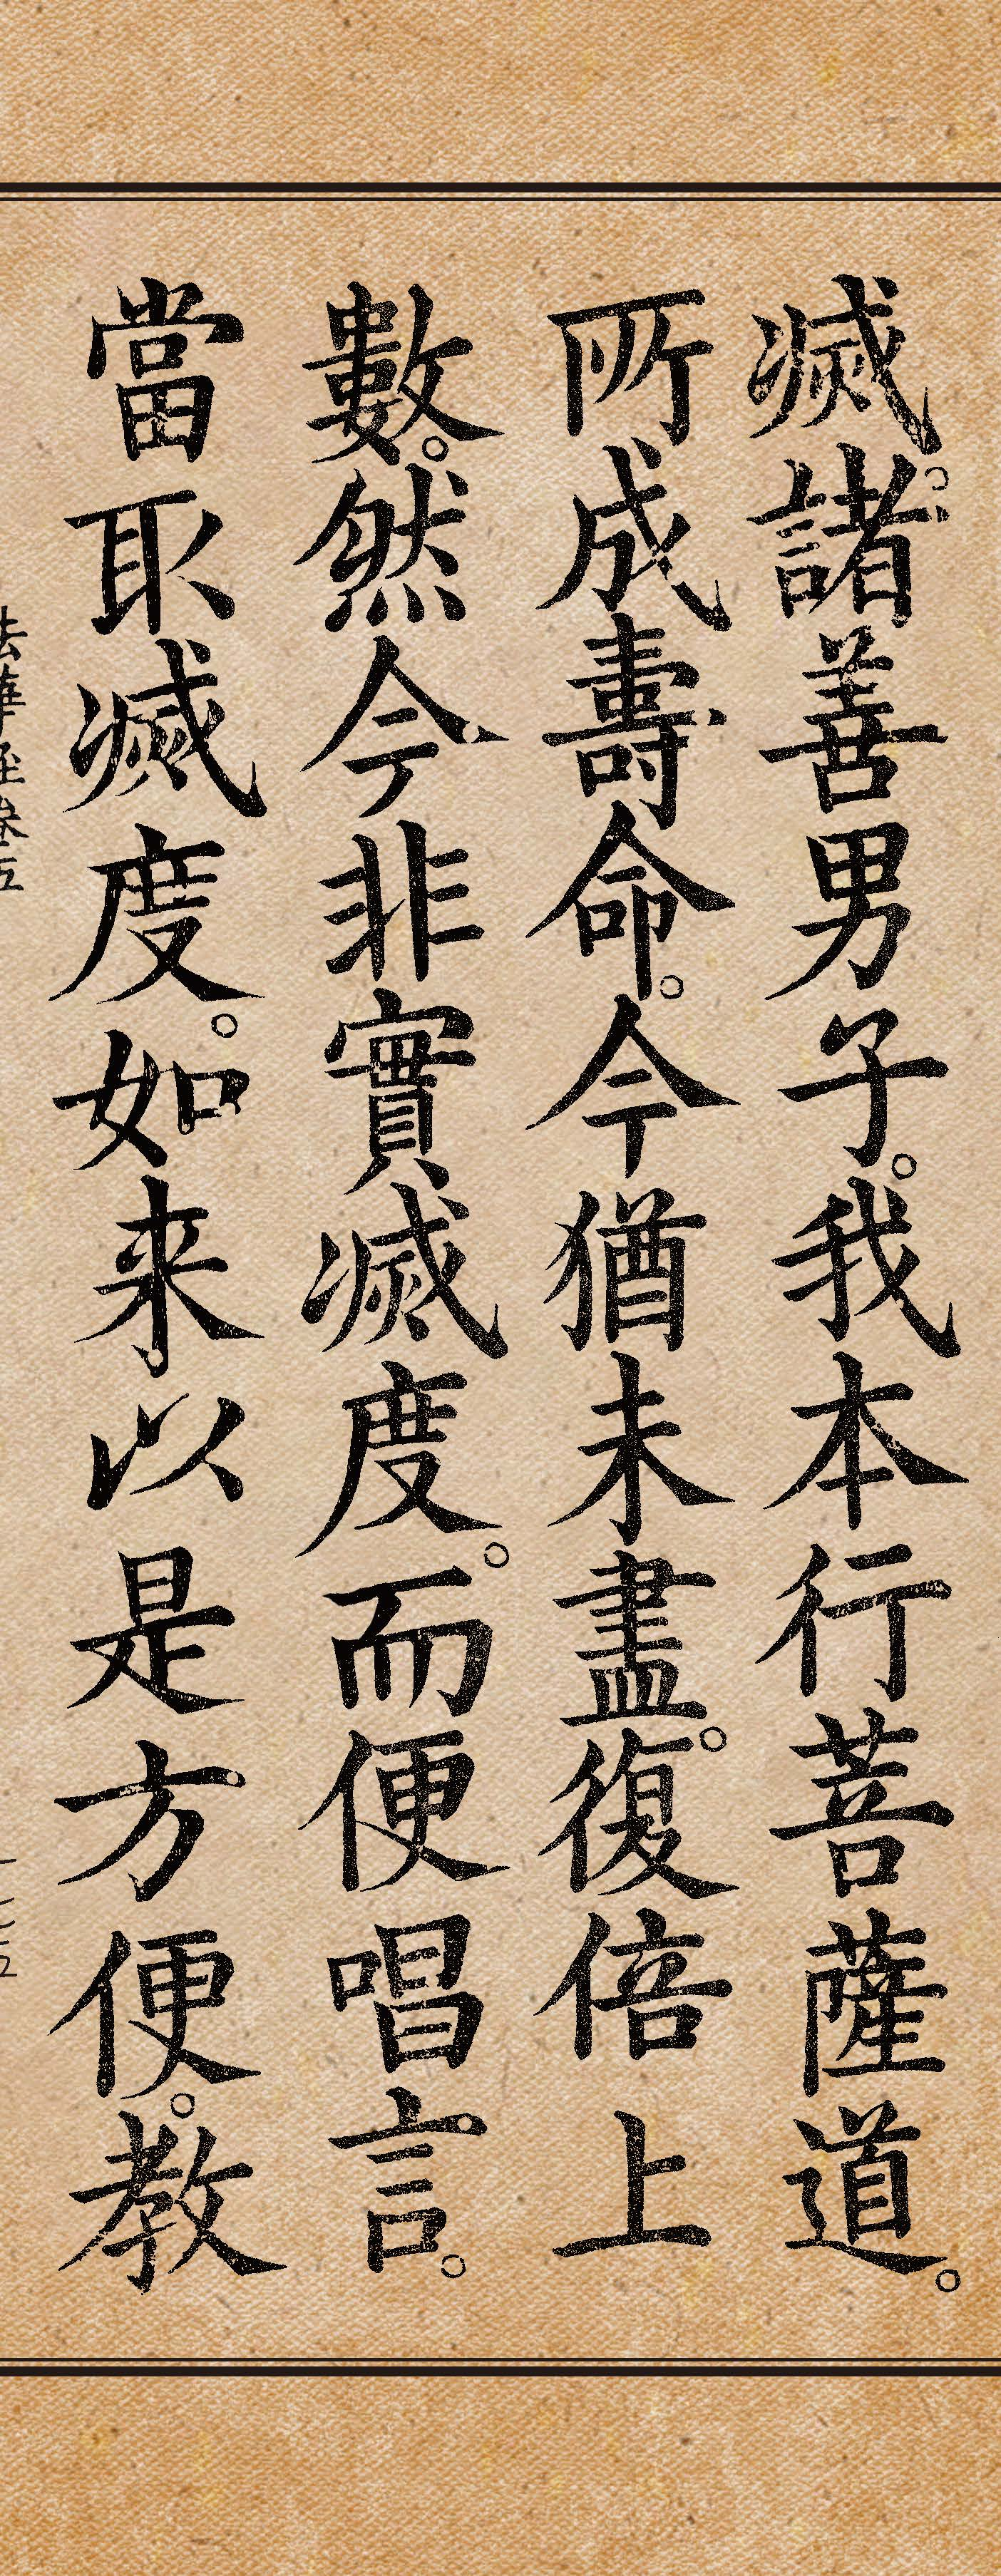 滅。諸善男子。我本行菩薩道。
所成壽命。今猶未盡。復倍上
數。然今非實滅度。而便唱言。
當取滅度。如来以是方便。教
法華經卷五